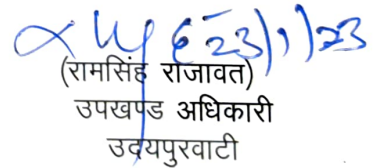 23/1/23
(रामसिंह राजावत)
उपखण्ड अधिकारी
उदयपुरवाटी